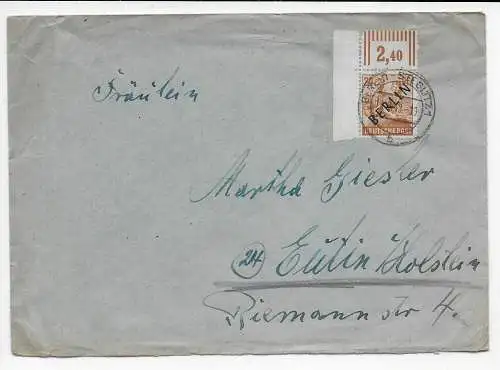 2,40
24
BERLIN
DEUTSCHE POST
Fräulein
Martha Giesler
24 Eutin Holstein
Riemannstr 4.